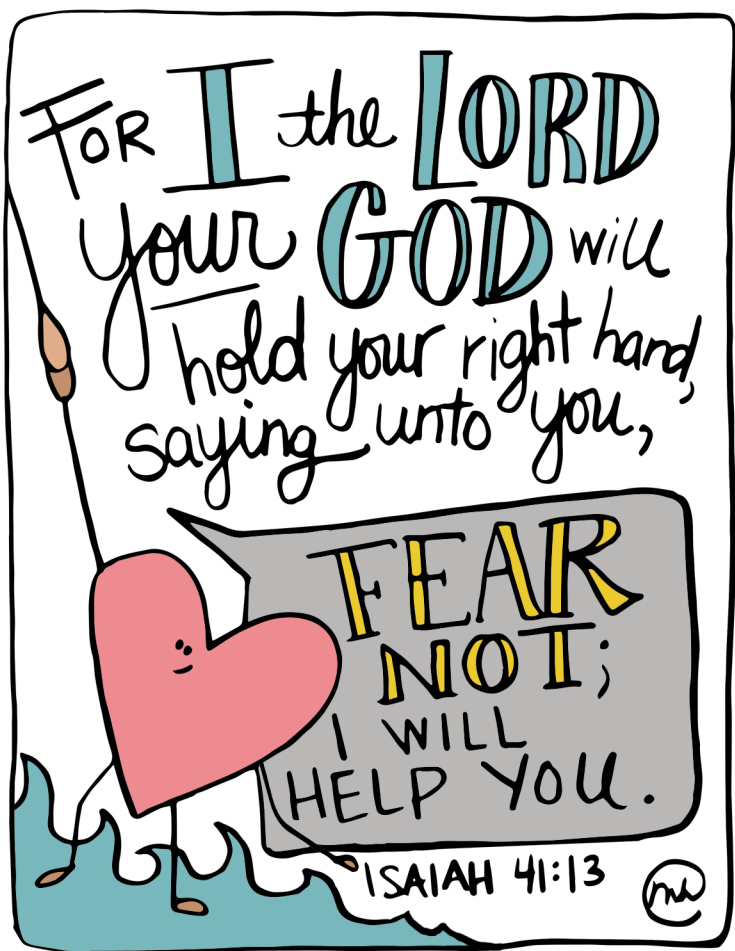 FOR I the LORD
your GOD will
hold your right hand,
saying unto you,
FEAR
NOT;
I WILL
HELP YOU.
ISAIAH 41:13